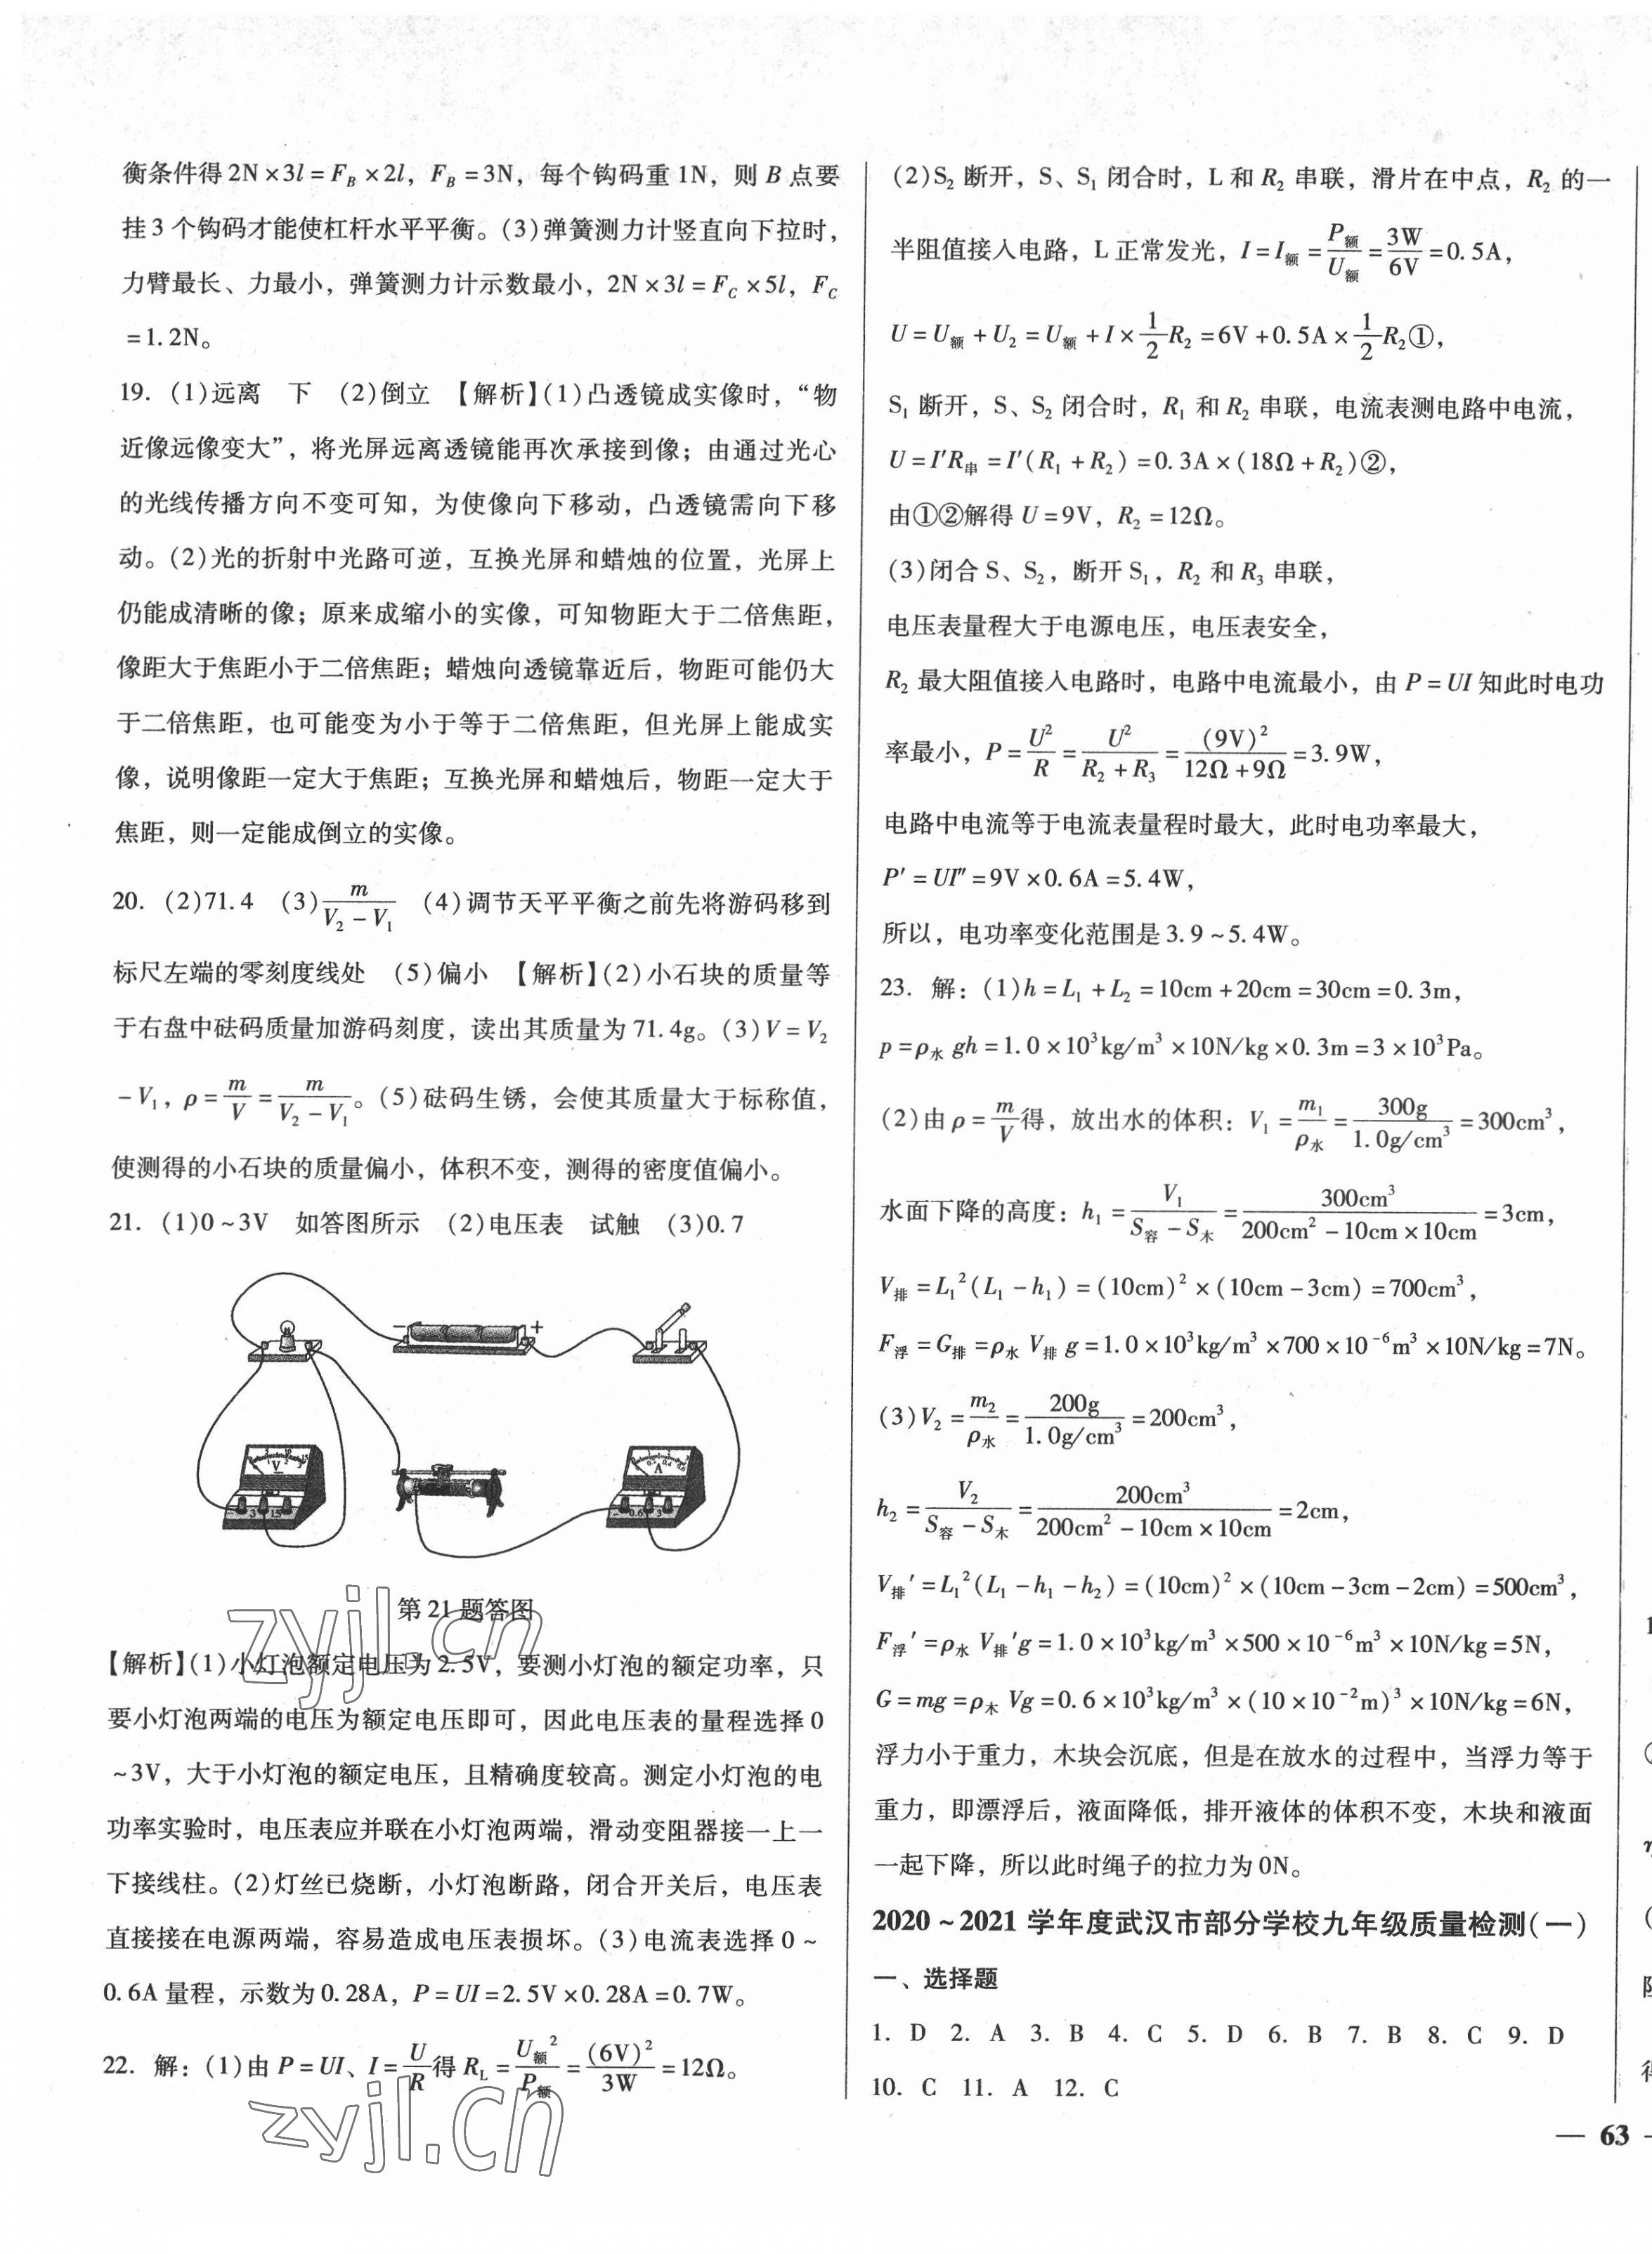 衡条件得 2N×3l=F_B×2l，F_B=3N，每个钩码重 1N，则 B 点要
挂 3 个钩码才能使杠杆水平平衡。(3)弹簧测力计竖直向下拉时，
力臂最长、力最小，弹簧测力计示数最小，2N×3l=F_C×5l，F_C
=1.2N。
19. (1)远离　下　(2)倒立　【解析】(1)凸透镜成实像时，“物
近像远像变大”，将光屏远离透镜能再次承接到像；由通过光心
的光线传播方向不变可知，为使像向下移动，凸透镜需向下移
动。(2)光的折射中光路可逆，互换光屏和蜡烛的位置，光屏上
仍能成清晰的像；原来成缩小的实像，可知物距大于二倍焦距，
像距大于焦距小于二倍焦距；蜡烛向透镜靠近后，物距可能仍大
于二倍焦距，也可能变为小于等于二倍焦距，但光屏上能成实
像，说明像距一定大于焦距；互换光屏和蜡烛后，物距一定大于
焦距，则一定能成倒立的实像。
20. (2)71.4　(3)m/(V₂-V₁)　(4)调节天平平衡之前先将游码移到
标尺左端的零刻度线处　(5)偏小　【解析】(2)小石块的质量等
于右盘中砝码质量加游码刻度，读出其质量为 71.4g。(3)V=V₂
-V₁，ρ=m/V=m/(V₂-V₁)。(5)砝码生锈，会使其质量大于标称值，
使测得的小石块的质量偏小，体积不变，测得的密度值偏小。
21. (1)0~3V　如答图所示　(2)电压表　试触　(3)0.7
- +
V
- 3 15
A
- 0.6 3
第 21 题答图
【解析】(1)小灯泡额定电压为 2.5V，要测小灯泡的额定功率，只
要小灯泡两端的电压为额定电压即可，因此电压表的量程选择 0
~3V，大于小灯泡的额定电压，且精确度较高。测定小灯泡的电
功率实验时，电压表应并联在小灯泡两端，滑动变阻器接一上一
下接线柱。(2)灯丝已烧断，小灯泡断路，闭合开关后，电压表
直接接在电源两端，容易造成电压表损坏。(3)电流表选择 0~
0.6A 量程，示数为 0.28A，P=UI=2.5V×0.28A=0.7W。
22. 解：(1)由 P=UI、I=U/R得 R_L=U额²/P额=(6V)²/3W=12Ω。
(2)S₂ 断开，S、S₁ 闭合时，L 和 R₂ 串联，滑片在中点，R₂ 的一
半阻值接入电路，L 正常发光，I=I额=P额/U额=3W/6V=0.5A，
U=U额+U₂=U额+I×1/2R₂=6V+0.5A×1/2R₂①，
S₁ 断开，S、S₂ 闭合时，R₁ 和 R₂ 串联，电流表测电路中电流，
U=I′R串=I′(R₁+R₂)=0.3A×(18Ω+R₂)②，
由①②解得 U=9V，R₂=12Ω。
(3)闭合 S、S₂，断开 S₁，R₂ 和 R₃ 串联，
电压表量程大于电源电压，电压表安全，
R₂ 最大阻值接入电路时，电路中电流最小，由 P=UI 知此时电功
率最小，P=U²/R=U²/(R₂+R₃)=(9V)²/(12Ω+9Ω)=3.9W，
电路中电流等于电流表量程时最大，此时电功率最大，
P′=UI″=9V×0.6A=5.4W，
所以，电功率变化范围是 3.9~5.4W。
23. 解：(1)h=L₁+L₂=10cm+20cm=30cm=0.3m，
p=ρ水gh=1.0×10³kg/m³×10N/kg×0.3m=3×10³Pa。
(2)由 ρ=m/V得，放出水的体积：V₁=m₁/ρ水=300g/(1.0g/cm³)=300cm³，
水面下降的高度：h₁=V₁/(S容-S木)=300cm³/(200cm²-10cm×10cm)=3cm，
V排=L₁²(L₁-h₁)=(10cm)²×(10cm-3cm)=700cm³，
F浮=G排=ρ水V排g=1.0×10³kg/m³×700×10⁻⁶m³×10N/kg=7N。
(3)V₂=m₂/ρ水=200g/(1.0g/cm³)=200cm³，
h₂=V₂/(S容-S木)=200cm³/(200cm²-10cm×10cm)=2cm，
V排′=L₁²(L₁-h₁-h₂)=(10cm)²×(10cm-3cm-2cm)=500cm³，
F浮′=ρ水V排′g=1.0×10³kg/m³×500×10⁻⁶m³×10N/kg=5N，
G=mg=ρ木Vg=0.6×10³kg/m³×(10×10⁻²m)³×10N/kg=6N，
浮力小于重力，木块会沉底，但是在放水的过程中，当浮力等于
重力，即漂浮后，液面降低，排开液体的体积不变，木块和液面
一起下降，所以此时绳子的拉力为 0N。
2020~2021 学年度武汉市部分学校九年级质量检测(一)
一、选择题
1. D 2. A 3. B 4. C 5. D 6. B 7. B 8. C 9. D
10. C 11. A 12. C
— 63
zyjl.cn
zyjl.cn